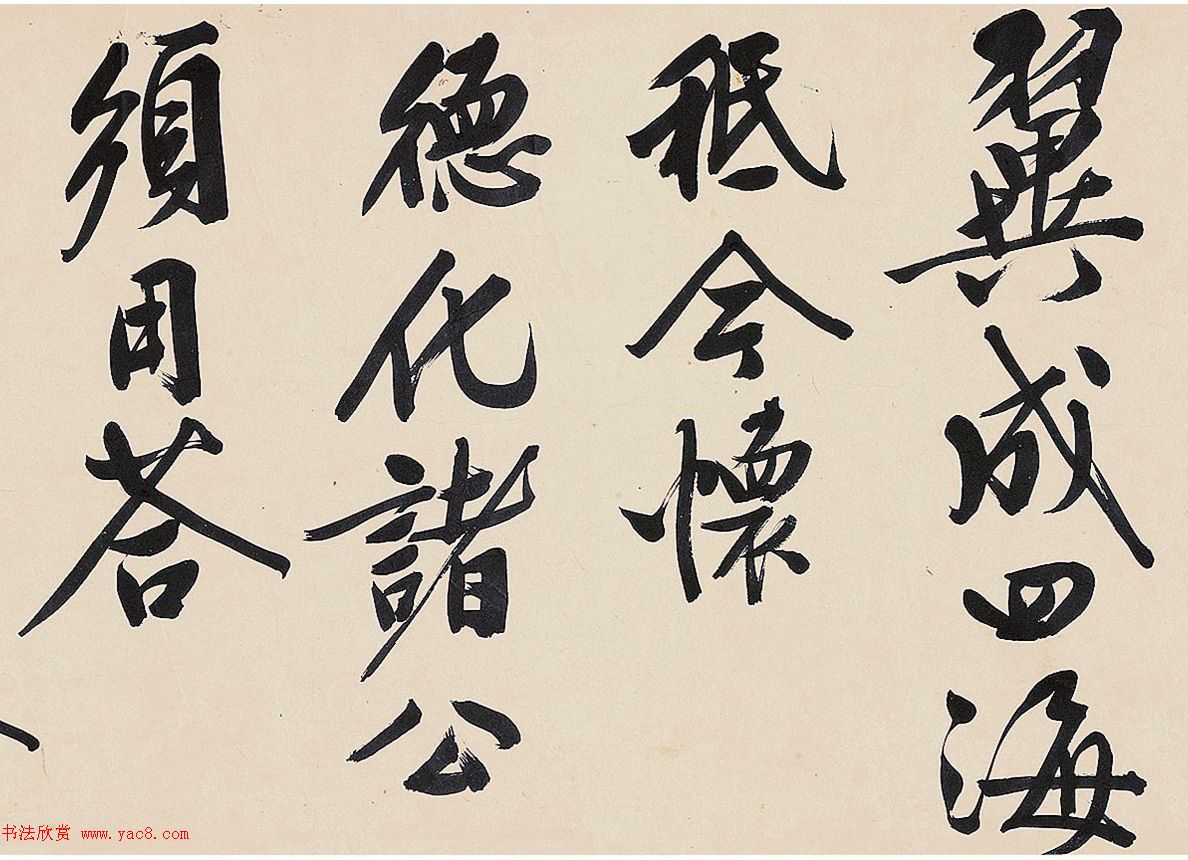 翼成四海
秖今懷
德化諸公
須用答
书法欣赏 www.yac8.com